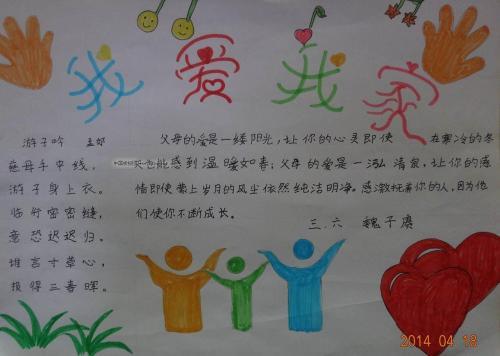 我爱我家
游子吟 孟郊
慈母手中线，
游子身上衣。
临行密密缝，
意恐迟迟归。
谁言寸草心，
报得三春晖。
父母的爱是一缕阳光，让你的心灵即使 在寒冷的冬
天也能感到温暖如春；父母的爱是一泓清泉，让你的感
情即使蒙上岁月的风尘依然纯洁明净。感激抚养你的人，因为他
们使你不断成长。
三.六 魏子赓
2014 04 18